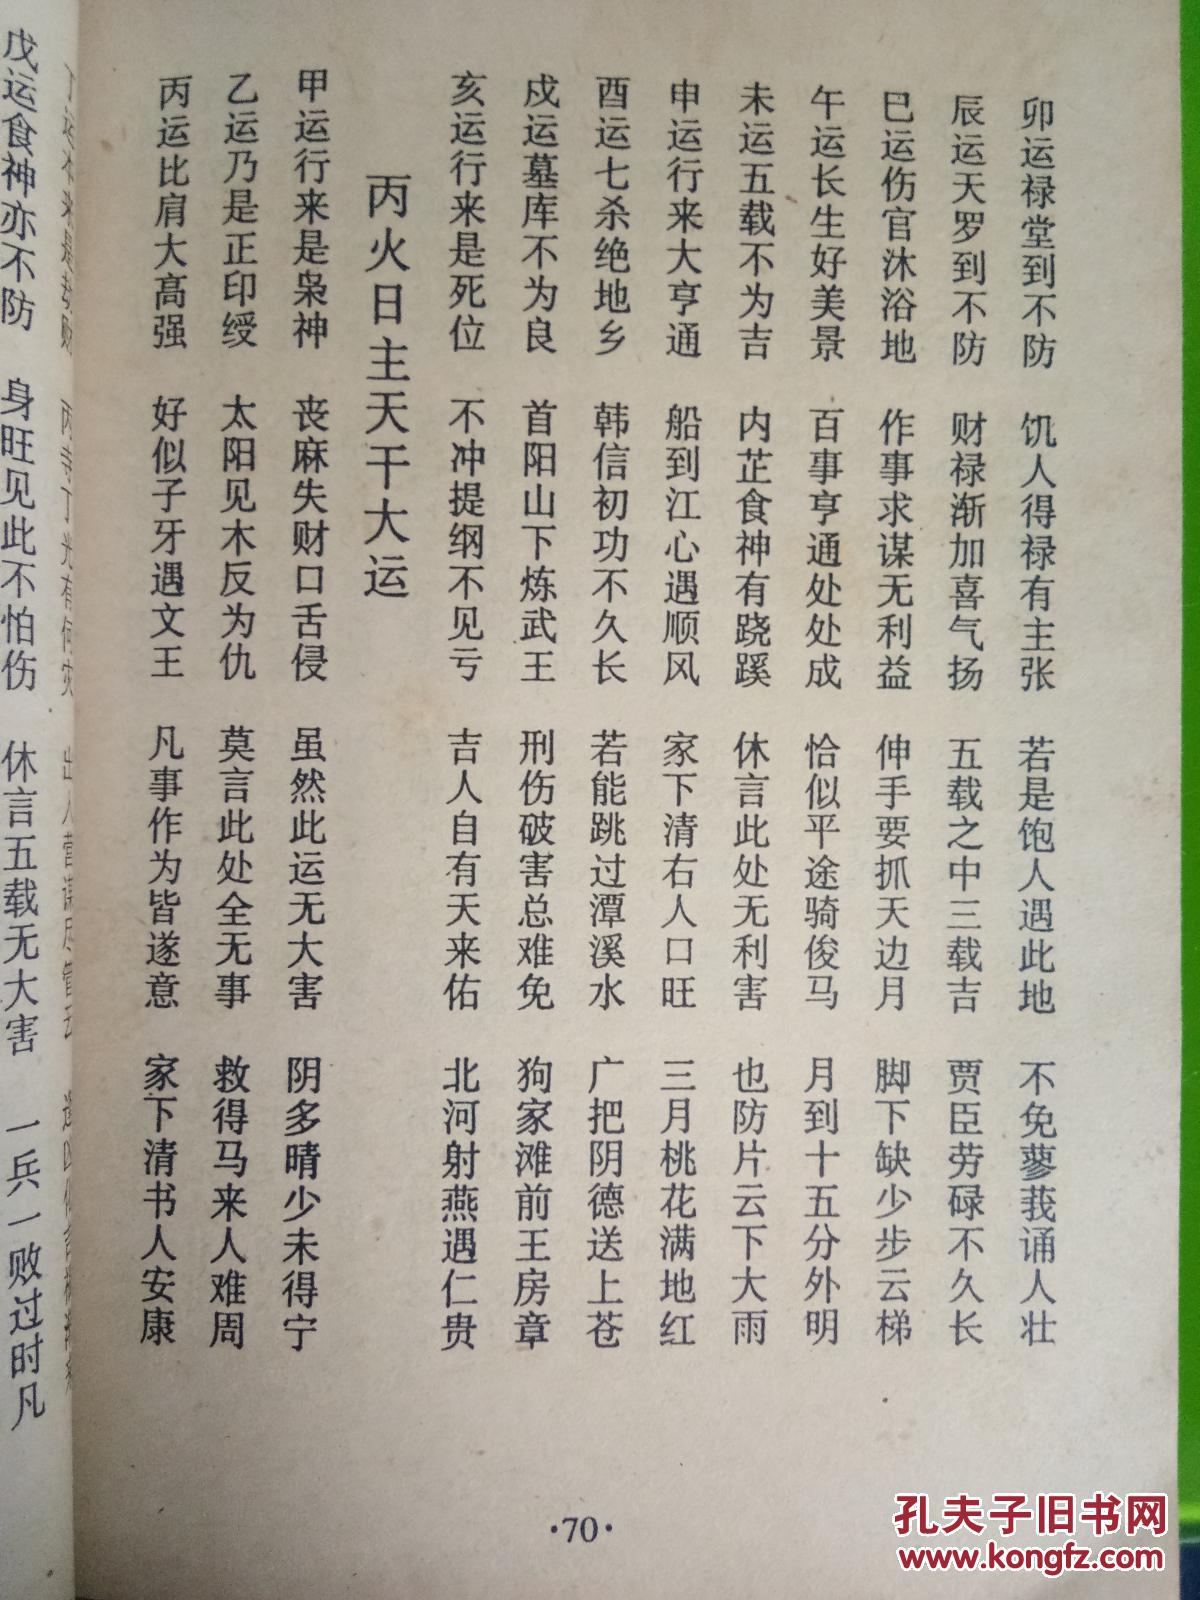 卯运禄堂到不防 饥人得禄有主张 若是饱人遇此地 不免蓼莪诵人壮
辰运天罗到不防 财禄渐加喜气扬 五载之中三载吉 贾臣劳碌不久长
巳运伤官沐浴地 作事求谋无利益 伸手要抓天边月 脚下缺少步云梯
午运长生好美景 百事亨通处处成 恰似平途骑俊马 月到十五分外明
未运五载不为吉 内芷食神有跷蹊 休言此处无利害 也防片云下大雨
申运行来大亨通 船到江心遇顺风 家下清右人口旺 三月桃花满地红
酉运七杀绝地乡 韩信初功不久长 若能跳过潭溪水 广把阴德送上苍
戍运墓库不为良 首阳山下炼武王 刑伤破害总难免 狗家滩前王房章
亥运行来是死位 不冲提纲不见亏 吉人自有天来佑 北河射燕遇仁贵
丙火日主天干大运
甲运行来是枭神 丧麻失财口舌侵 虽然此运无大害 阴多晴少未得宁
乙运乃是正印绶 太阳见木反为仇 莫言此处全无事 救得马来人难周
丙运比肩大高强 好似子牙遇文王 凡事作为皆遂意 家下清书人安康
戊运食神亦不防 身旺见此不怕伤 休言五载无大害 一兵一败过时凡
·70·
孔夫子旧书网
www.kongfz.com